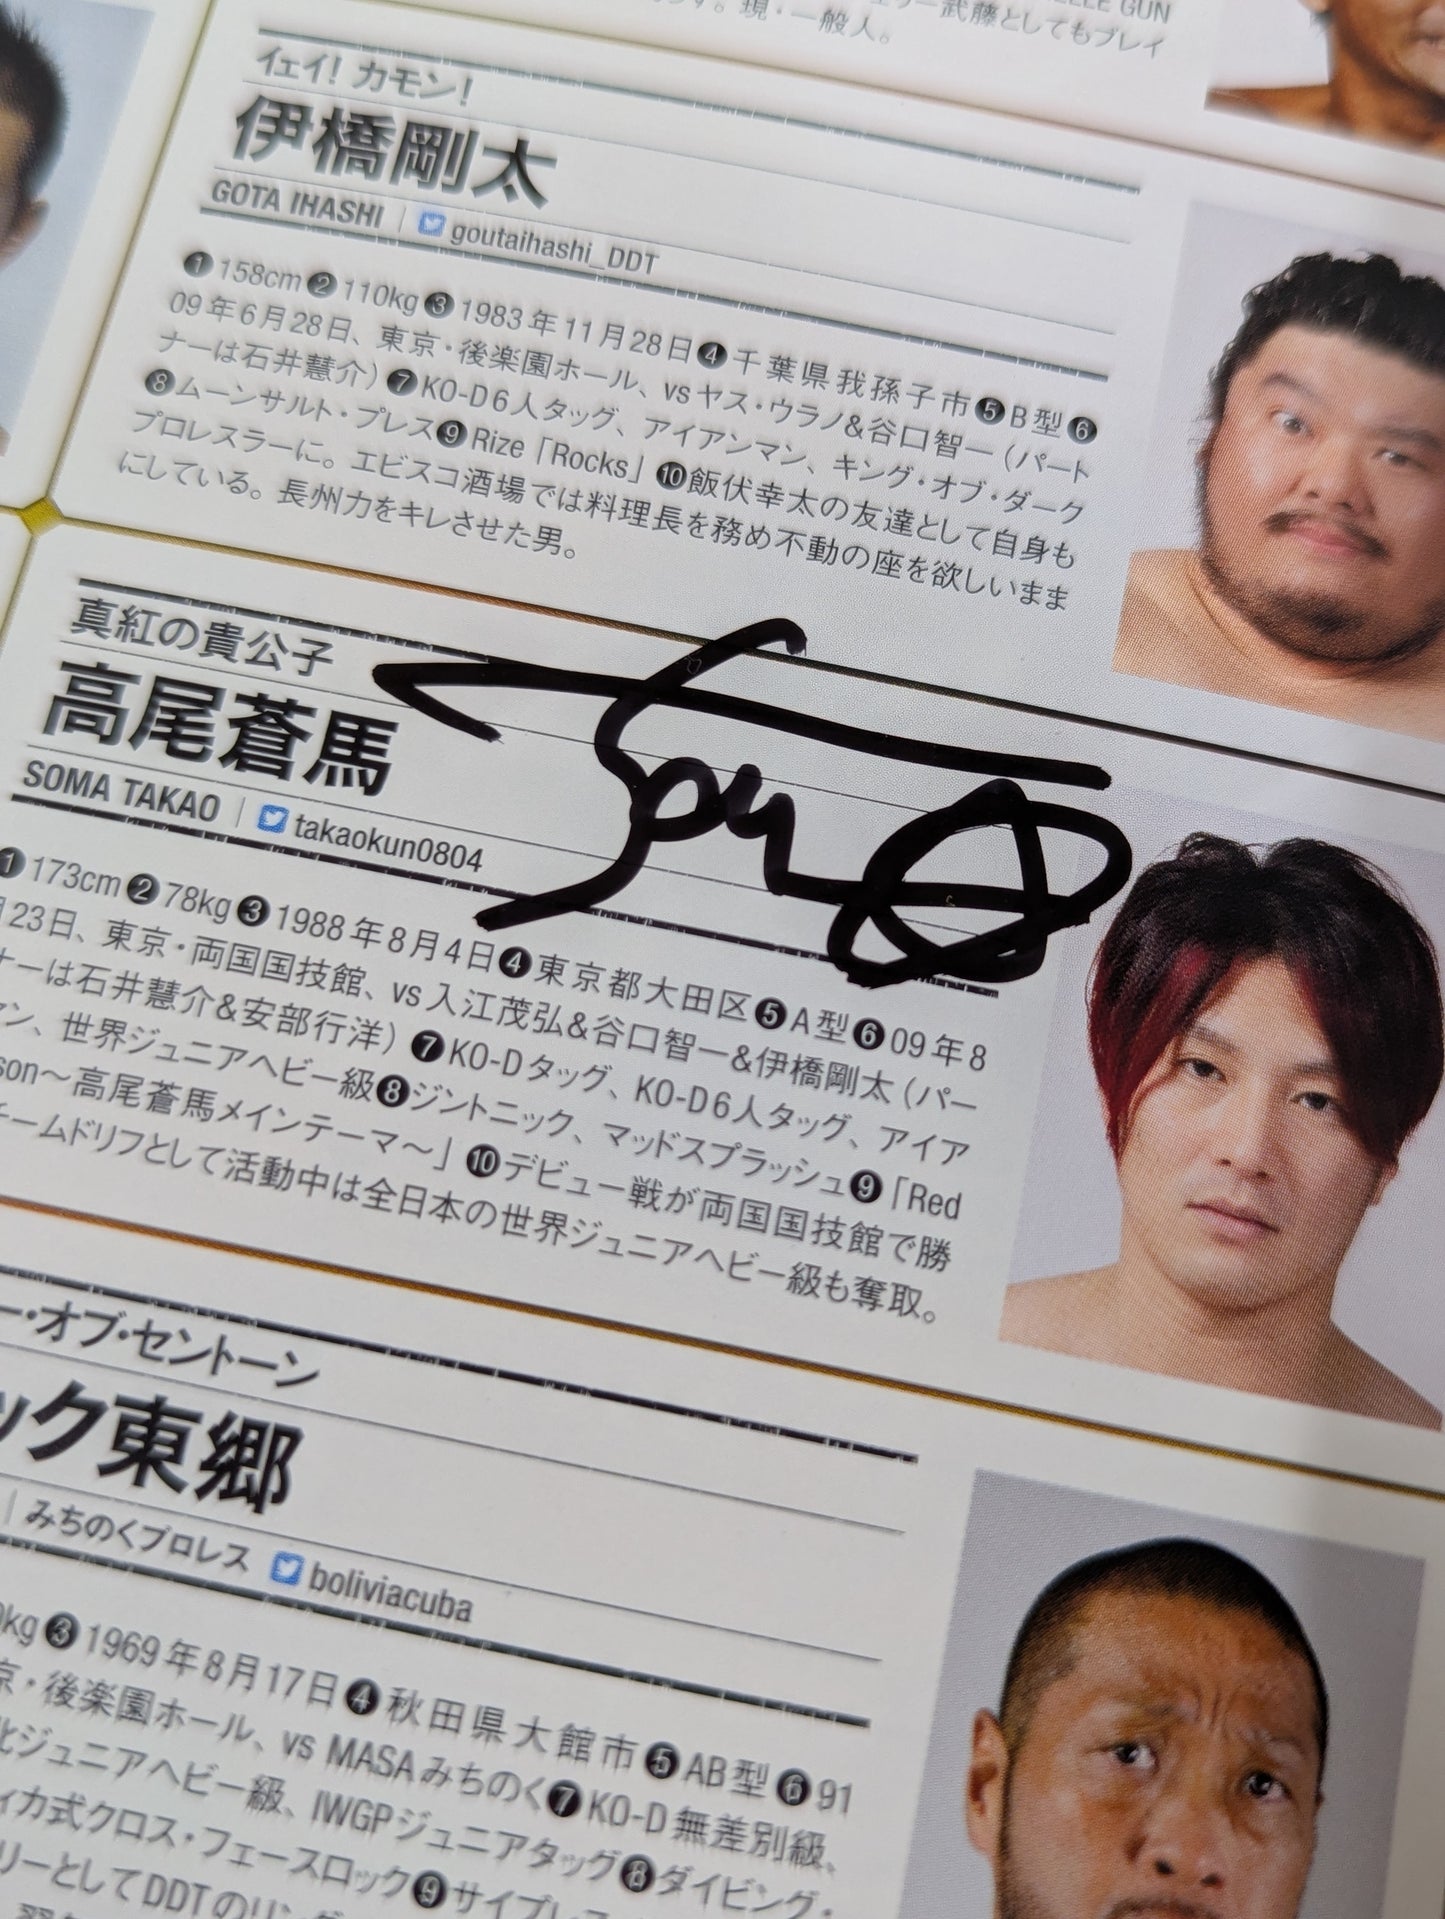 ELLE GUN
武藤としてもブレイ
す。現・一般人。
イェイ! カモン!
伊橋剛太
GOTA IHASHI | goutaihashi_DDT
❶158cm❷110kg❸1983年11月28日❹千葉県我孫子市❺B型❻
09年6月28日、東京・後楽園ホール、vsヤス・ウラノ&谷口智一(パート
ナーは石井慧介)❼KO-D6人タッグ、アイアンマン、キング・オブ・ダーク
❽ムーンサルト・プレス❾Rize「Rocks」❿飯伏幸太の友達として自身も
プロレスラーに。エビスコ酒場では料理長を務め不動の座を欲しいまま
にしている。長州力をキレさせた男。
真紅の貴公子
高尾蒼馬
SOMA TAKAO | takaokun0804
❶173cm❷78kg❸1988年8月4日❹東京都大田区❺A型❻09年8
月23日、東京・両国国技館、vs入江茂弘&谷口智一&伊橋剛太(パー
ナーは石井慧介&安部行洋)❼KO-Dタッグ、KO-D6人タッグ、アイア
ン、世界ジュニアヘビー級❽ジントニック、マッドスプラッシュ❾「Red
son〜高尾蒼馬メインテーマ〜」❿デビュー戦が両国国技館で勝
チームドリフとして活動中は全日本の世界ジュニアヘビー級も奪取。
ー・オブ・セントーン
ック東郷
| みちのくプロレス boliviacuba
kg❸1969年8月17日❹秋田県大館市❺AB型❻91
京・後楽園ホール、vs MASAみちのく❼KO-D無差別級、
ジュニアヘビー級、IWGPジュニアタッグ❽ダイビング・
ィカ式クロス・フェースロック❾サイプレス
リーとしてDDTのリング